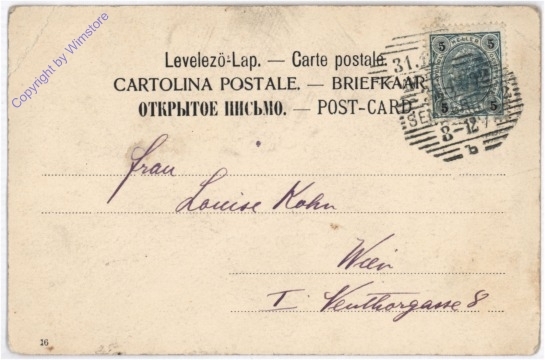 Copyright by Wimstore
Levelező-Lap. — Carte postale.
CARTOLINA POSTALE. — BRIEFKAAR
ОТКРЫТОЕ ПИСЬМО. — POST-CARD
5 5
5 5
31.
8-12
b
Frau
Louise Kohn
Wien
I. Neuthorgasse 8
16